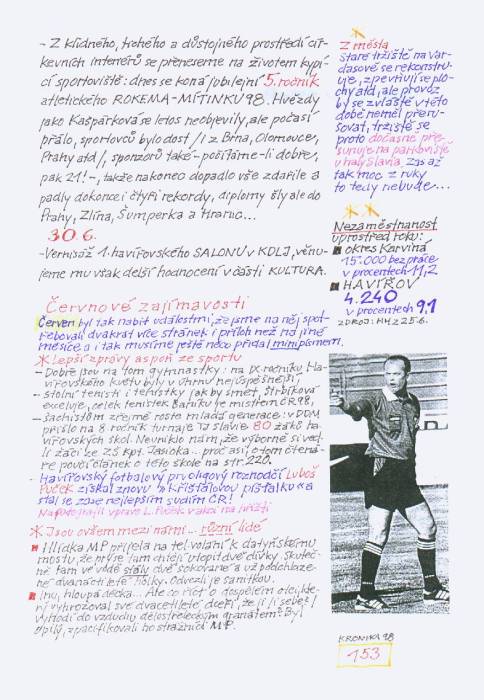 - Z klidného, tichého a důstojného prostředí cír-
kevních interiérů se přeneseme na životem kypí-
cí sportoviště: dnes se koná jubilejní 5. ročník
atletického ROKEMA-MÍTINKU 98. Hvězdy
jako Kašpárková se letos neobjevily, ale počasí
přálo, sportovců bylo dost /i z Brna, Olomouce,
Prahy atd/, sponzorů také - počítáme-li dobře,
pak 21! -, takže nakonec dopadlo vše zdařile a
padly dokonce i čtyři rekordy, diplomy šly ale do
Prahy, Zlína, Šumperka a Hranic...
30.6.
- Vernisáž 1. havířovského SALONU v KDLJ, věnu-
jeme mu však delší hodnocení v části KULTURA.
Červnové zajímavosti
Červen byl tak nabitý událostmi, že jsme na něj spot-
řebovali dvakrát více stránek i příloh než na jiné
měsíce a i tak musíme ještě něco přidat mini písmem.
* Lepší zprávy aspoň ze sportu
- Dobře jsou na tom gymnastky: na IX. ročníku Ha-
vířovského květu byly v úhrnu nejúspěšnější,
- stolní tenisti i tenistky jakbysmet, Štrbíková
exceluje, celek tenistek Baníku je mistrem ČR 98,
- šachistům zřejmě roste mladá generace: v DDM
přišlo na 8. ročník turnaje Táslavie 80 žáků ha-
vířovských škol. Neuniklo nám, že výborně si ved-
li žáci ze ZŠ kpt. Jasioka... proč asi, o tom čtená-
ře poučí článek o této škole na str. 220.
- Havířovský fotbalový prvoligový rozhodčí Luboš
Puček získal znovu "Křišťálovou píšťalku" a
stal se zase nejlepším sudím ČR!
Na fotografii vpravo L. Puček v akci na hřišti
* Jsou ovšem mezi námi... různí lidé
Hlídka MP přijela na tel. volání k datyňskému
mostu, že prý se tam chtějí utopit dvě dívky. Skuteč-
ně tam ve vodě stály dvě sokované a už podchlaze-
né dvanáctileté holky. Odvezli je sanitkou.
Inu, hloupá děcka... Ale co říct o dospělém otci, kte-
rý vyhrožoval své dvacetileté dceři, že ji /i sebe/
vyhodí do vzduchu dělostřeleckým granátem? Byl
opilý, zpacifikovali ho strážníci MP.
Z města
Staré tržiště na Var-
dasově se rekonstru-
uje, zpevňují se plo-
chy atd, ale provoz
by se zvláště v této
době neměl přeru-
šovat, tržiště se
proto dočasně pře-
sunuje na parkoviště
u haly Slavia. Zas až
tak moc z ruky
to tedy nebude...
Nezaměstnanost
uprostřed roku:
okres Karviná
15.000 bez práce
v procentech 11,2
HAVÍŘOV
4.240
v procentech 9,1
ZDROJ: HH z 25.6.
KRONIKA 98
153